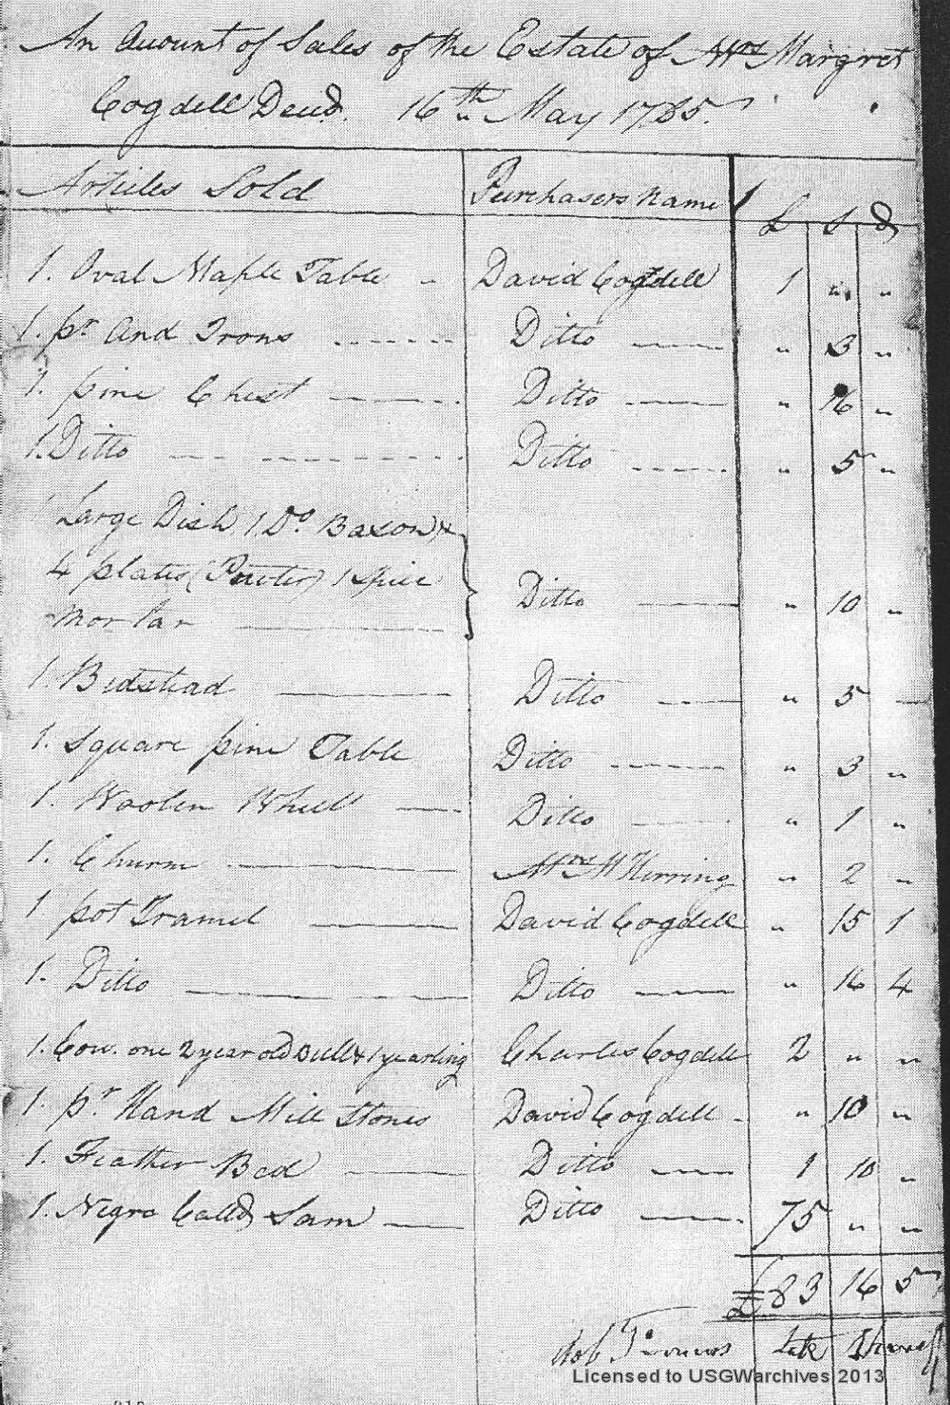 An Account of Sales of the Estate of Mrs Margret
Cogdell Decd. 16th May 1785.
Articles Sold Purchasers Name £ S d
1. Oval Maple Table - David Cogdell 1 " "
1. pr And Irons ------ Ditto — " 3 "
1. pine Chest ---- Ditto — " 16 "
1. Ditto ------ Ditto ---- " 5 "
Large Dish, 1 Do. Bason &
4 plates (Pewter) 1 Spice Ditto — " 10 "
Mortar —
1. Bedstead — Ditto — " 5 —
1. Square pine Table Ditto ---- " 3 "
1. Woolen Wheel — Ditto — " 1 "
1. Churn — Mrs M Herring " 2 "
1 pot Tramel — David Cogdell " 15 1
1. Ditto — Ditto — " 16 4
1. Cow. one 2 year old Bull & 1 yearling Charles Cogdell 2 " "
1. pr Hand Mill Stones David Cogdell - " 10 "
1. Feather Bed — Ditto — 1 10 "
1. Negro Called Sam — Ditto — 75 " "
£83 16 5
late Sheriff
Licensed to USGWarchives 2013